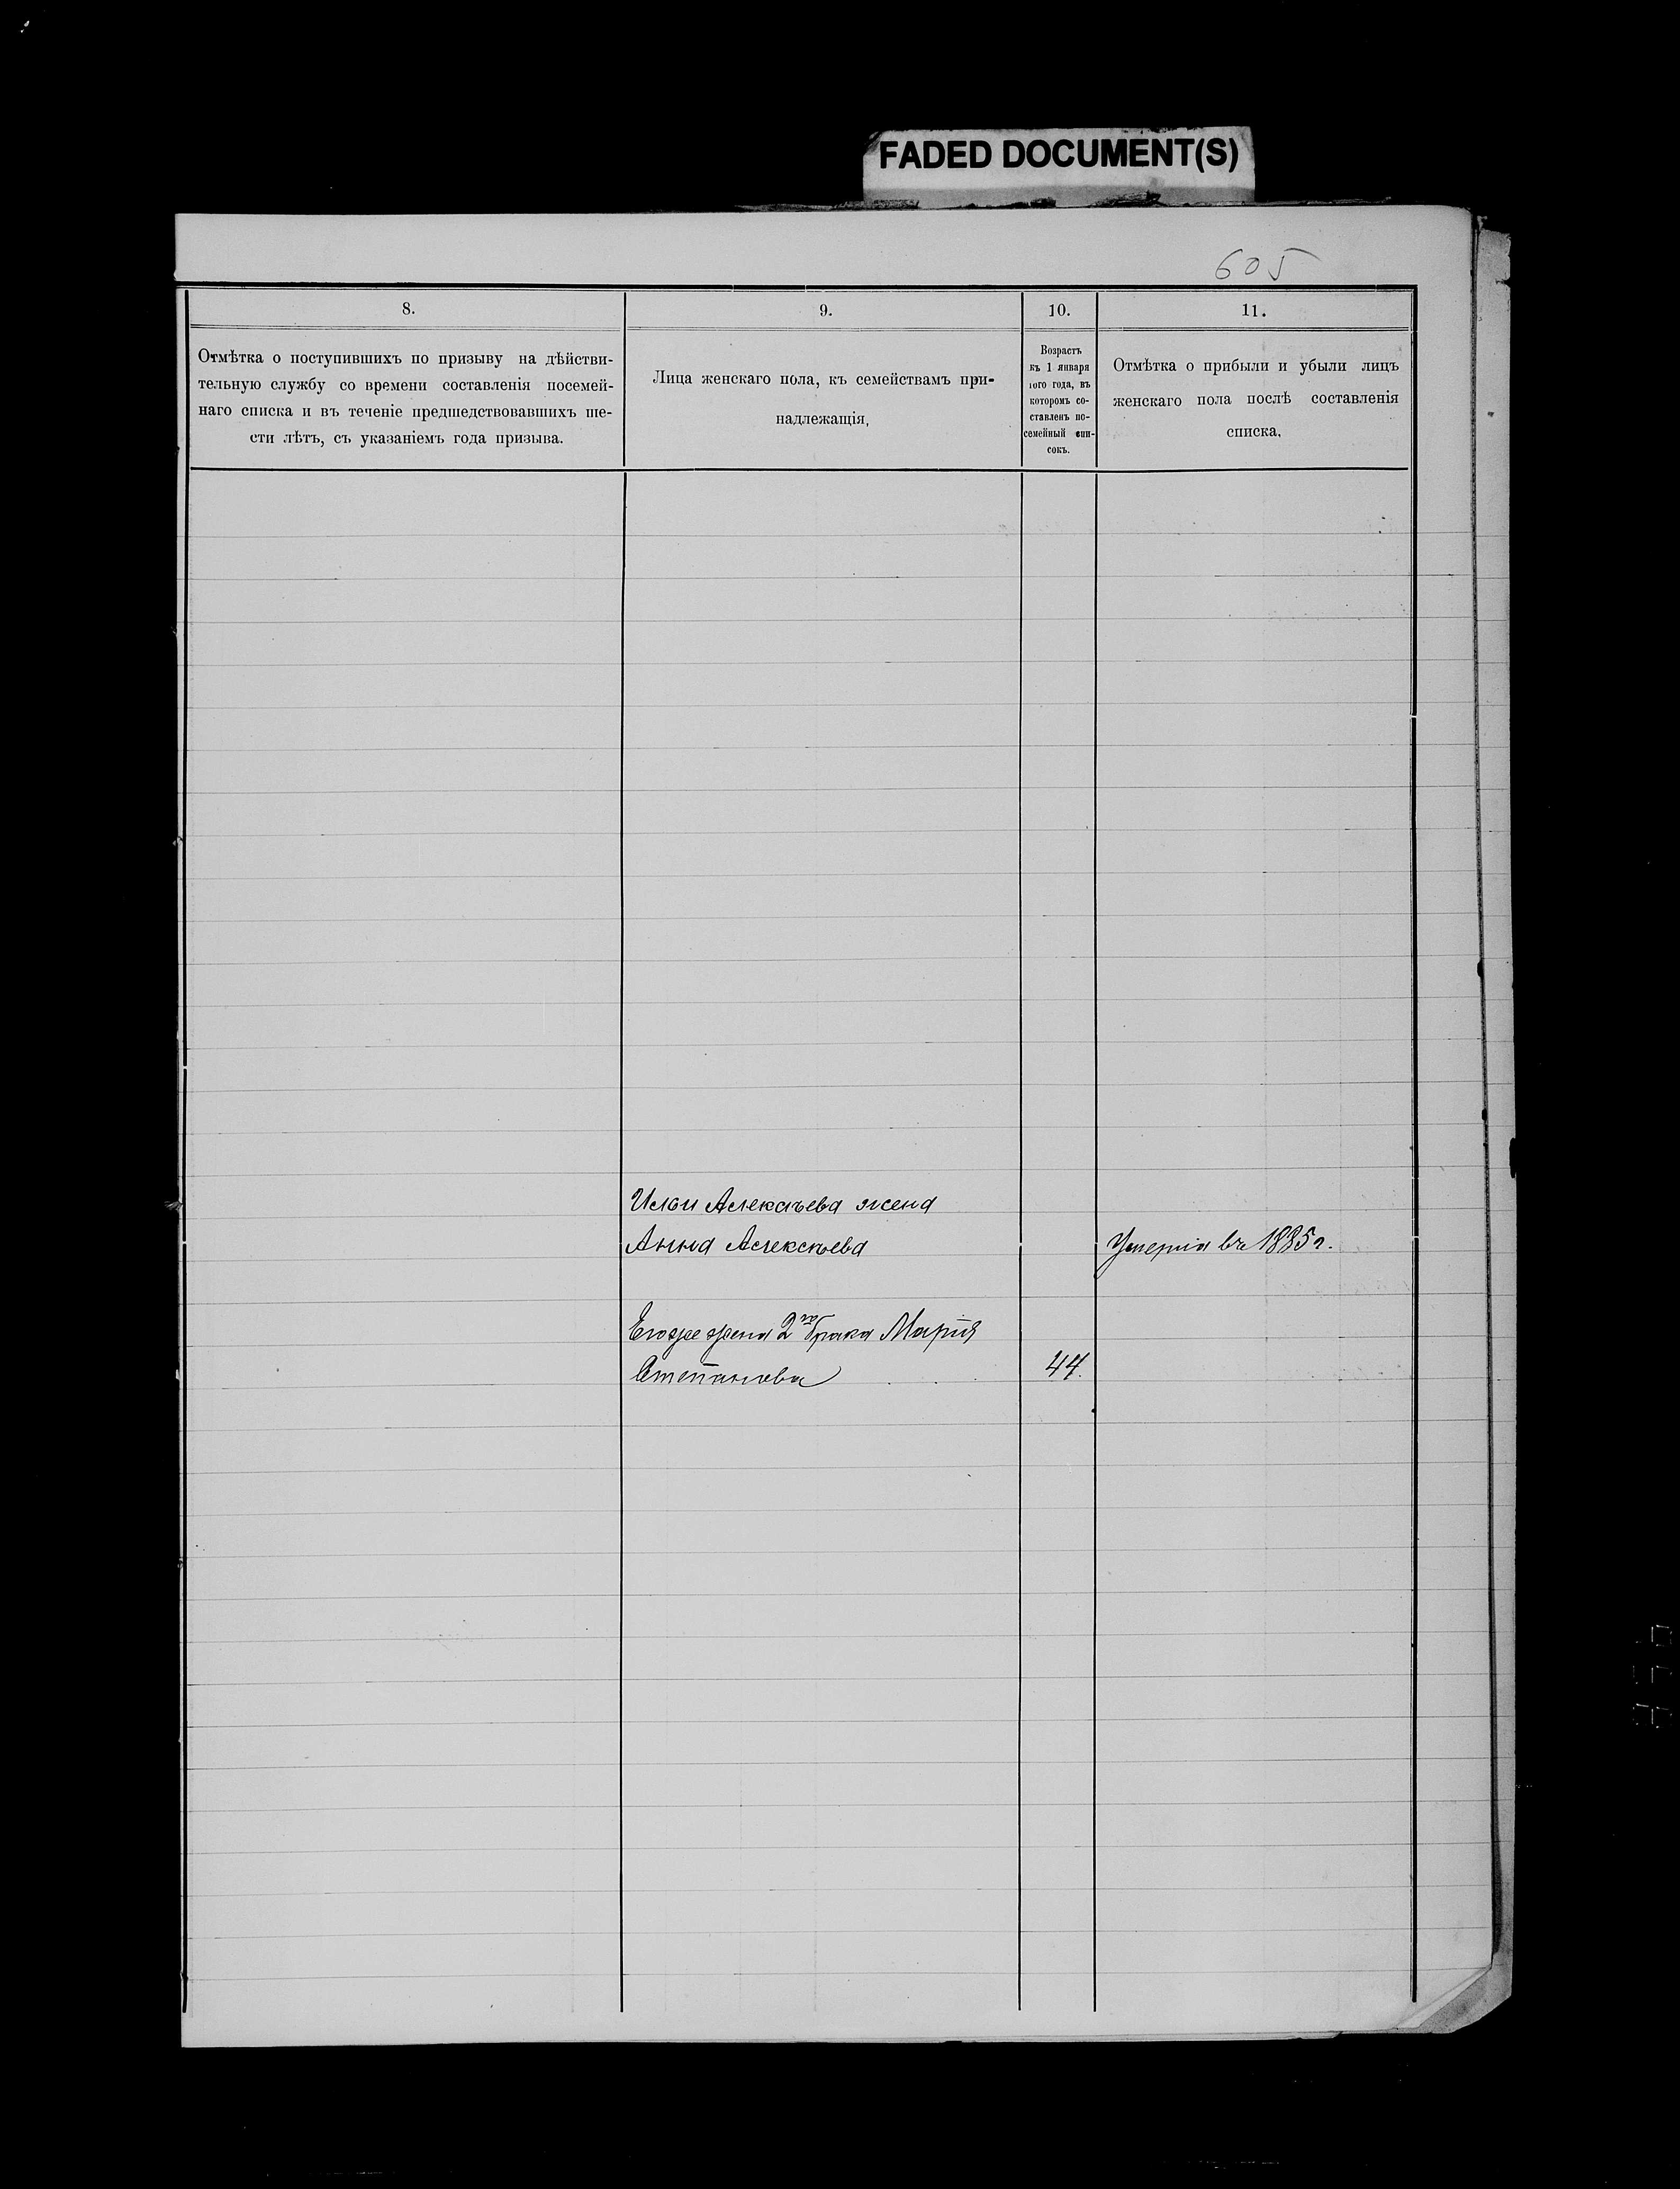 FADED DOCUMENT(S)
605
8.
9.
10.
11.
Отмѣтка о поступившихъ по призыву на дѣйстви-
тельную службу со времени составленія посемей-
наго списка и въ теченіе предшедствовавшихъ ше-
сти лѣтъ, съ указаніемъ года призыва.
Лица женскаго пола, къ семействамъ при-
надлежащія,
Возрастъ
къ 1 января
того года, въ
которомъ со-
ставленъ по-
семейный спи-
сокъ.
Отмѣтка о прибыли и убыли лицъ
женскаго пола послѣ составленія
списка,
Ильи Алексѣева жена
Анна Алексѣева
Умерла въ 1885 г.
Его же жена 2го брака Марія
Степанова
44.